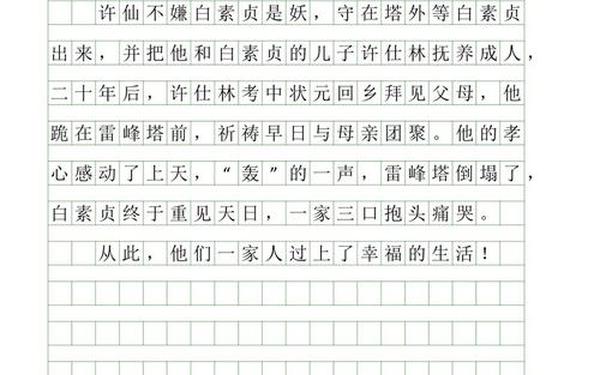 许仙不嫌白素贞是妖，守在塔外等白素贞
出来，并把他和白素贞的儿子许仕林抚养成人，
二十年后，许仕林考中状元回乡拜见父母，他
跪在雷峰塔前，祈祷早日与母亲团聚。他的孝
心感动了上天，“轰”的一声，雷峰塔倒塌了，
白素贞终于重见天日，一家三口抱头痛哭。
从此，他们一家人过上了幸福的生活！